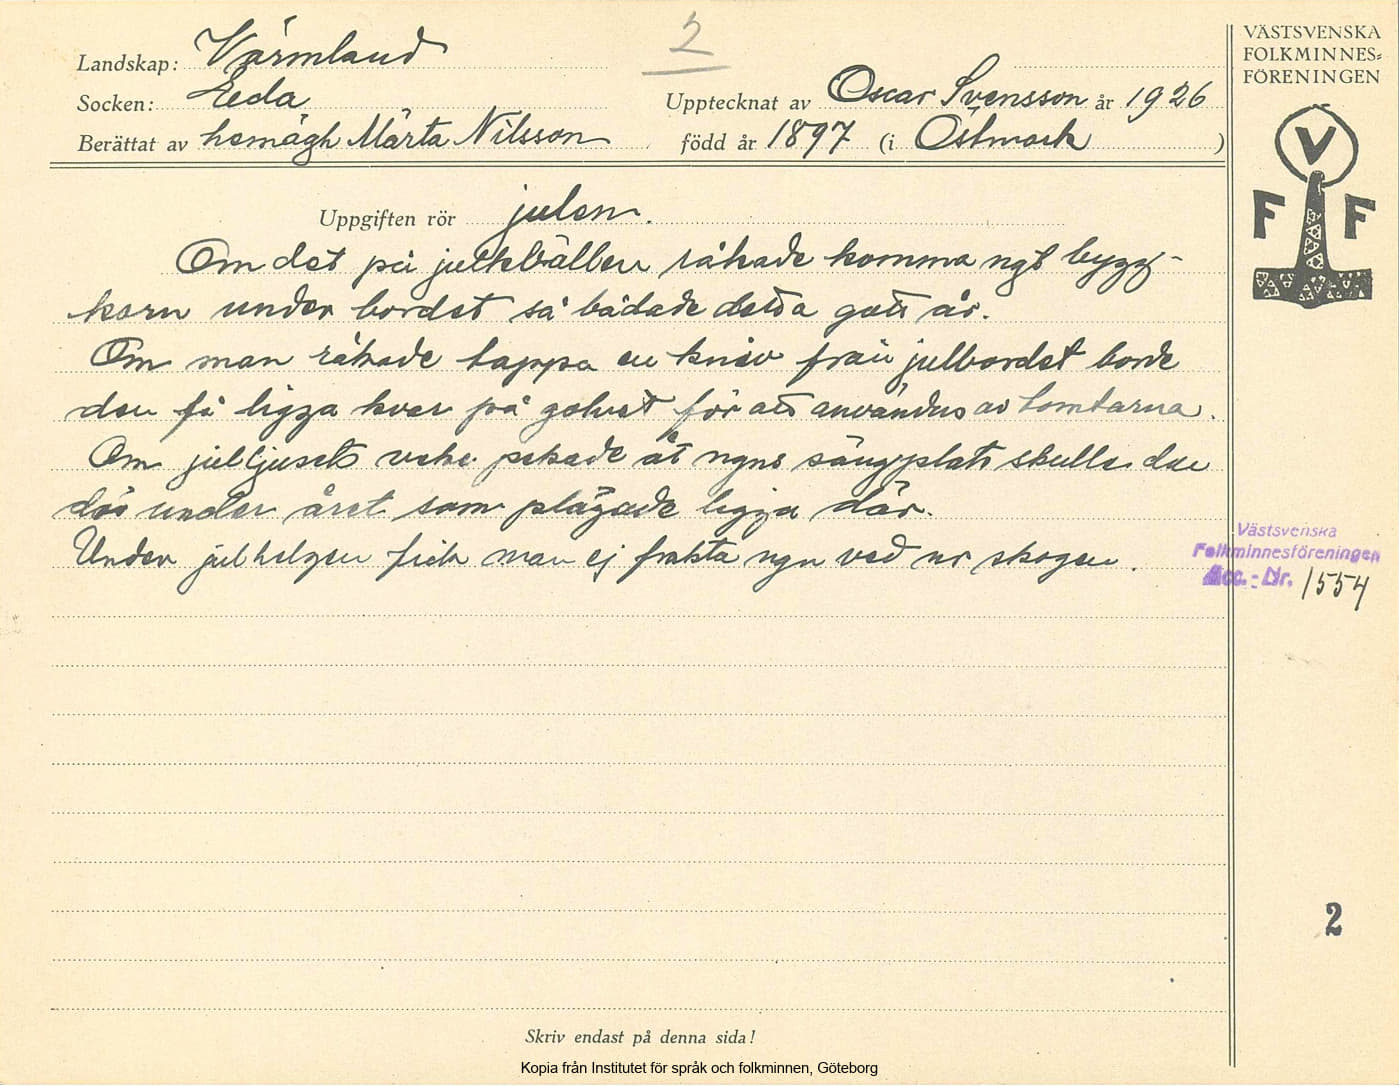 2
VÄSTSVENSKA
FOLKMINNES=
FÖRENINGEN
V
F F
Landskap: Värmland
Socken: Eda
Upptecknat av Oscar Svensson år 1926
Berättat av hemägh Märta Nilsson
född år 1897 (i Östmark )
Uppgiften rör julen.
Om det på julkvällen råkade komma ngt bygg-
korn under bordet så bådade detta gott år.
Om man råkade tappa en kniv från julbordet borde
den få ligga kvar på golvet för att användas av tomtarna.
Om julljusets veke pekade åt ngns sängplats skulle den
dö under året som plägade ligga där.
Under julhelgen fick man ej frakta ngn ved ur skogen.
Västsvenska
Folkminnesföreningen
Acc.-Nr. 1554
2
Skriv endast på denna sida!
Kopia från Institutet för språk och folkminnen, Göteborg